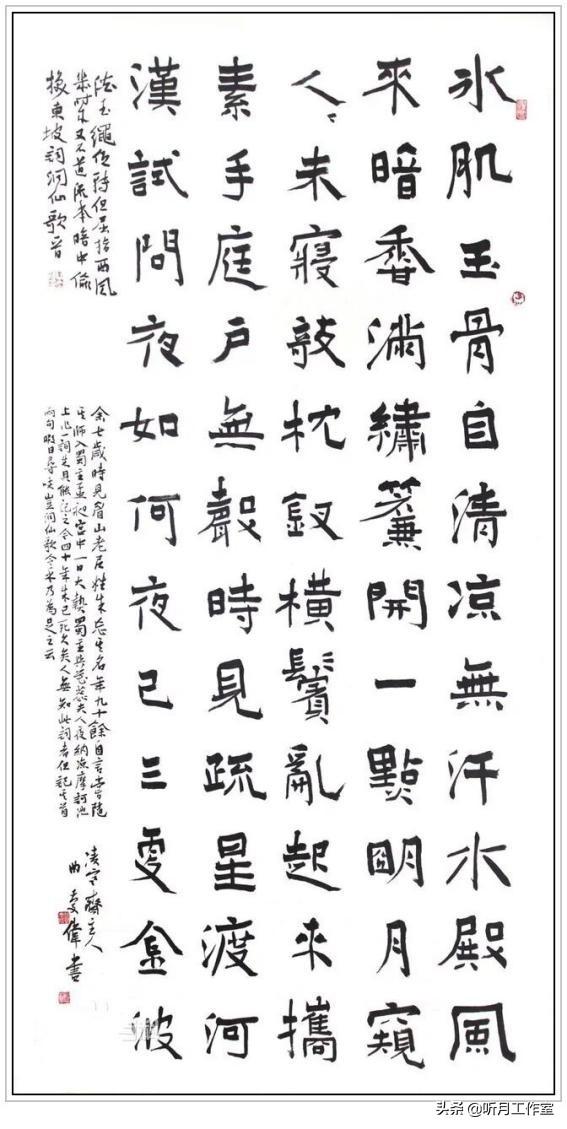 氷肌玉骨自清凉無汗水殿風
來暗香滿繡簾開一點明月窺
人〻未寢敧枕釵橫鬢亂起來攜
素手庭户無聲時見疏星渡河
漢試問夜如何夜已三更金波
淡玉繩低轉但屈指西風
幾時來又不道流年暗中偷
換東坡詞洞仙歌一首
余七歲時見眉山老尼姓朱忘其名年九十餘自言嘗隨
其師入蜀主孟昶宮中一日大熱蜀主與花蕊夫人夜納涼摩訶池
上作一詞朱具能記之今四十年朱已死久矣人無知此詞者但記其首
兩句暇日尋味豈洞仙歌令乎乃為足之云
齋主人
曲偉書
头条 @听月工作室